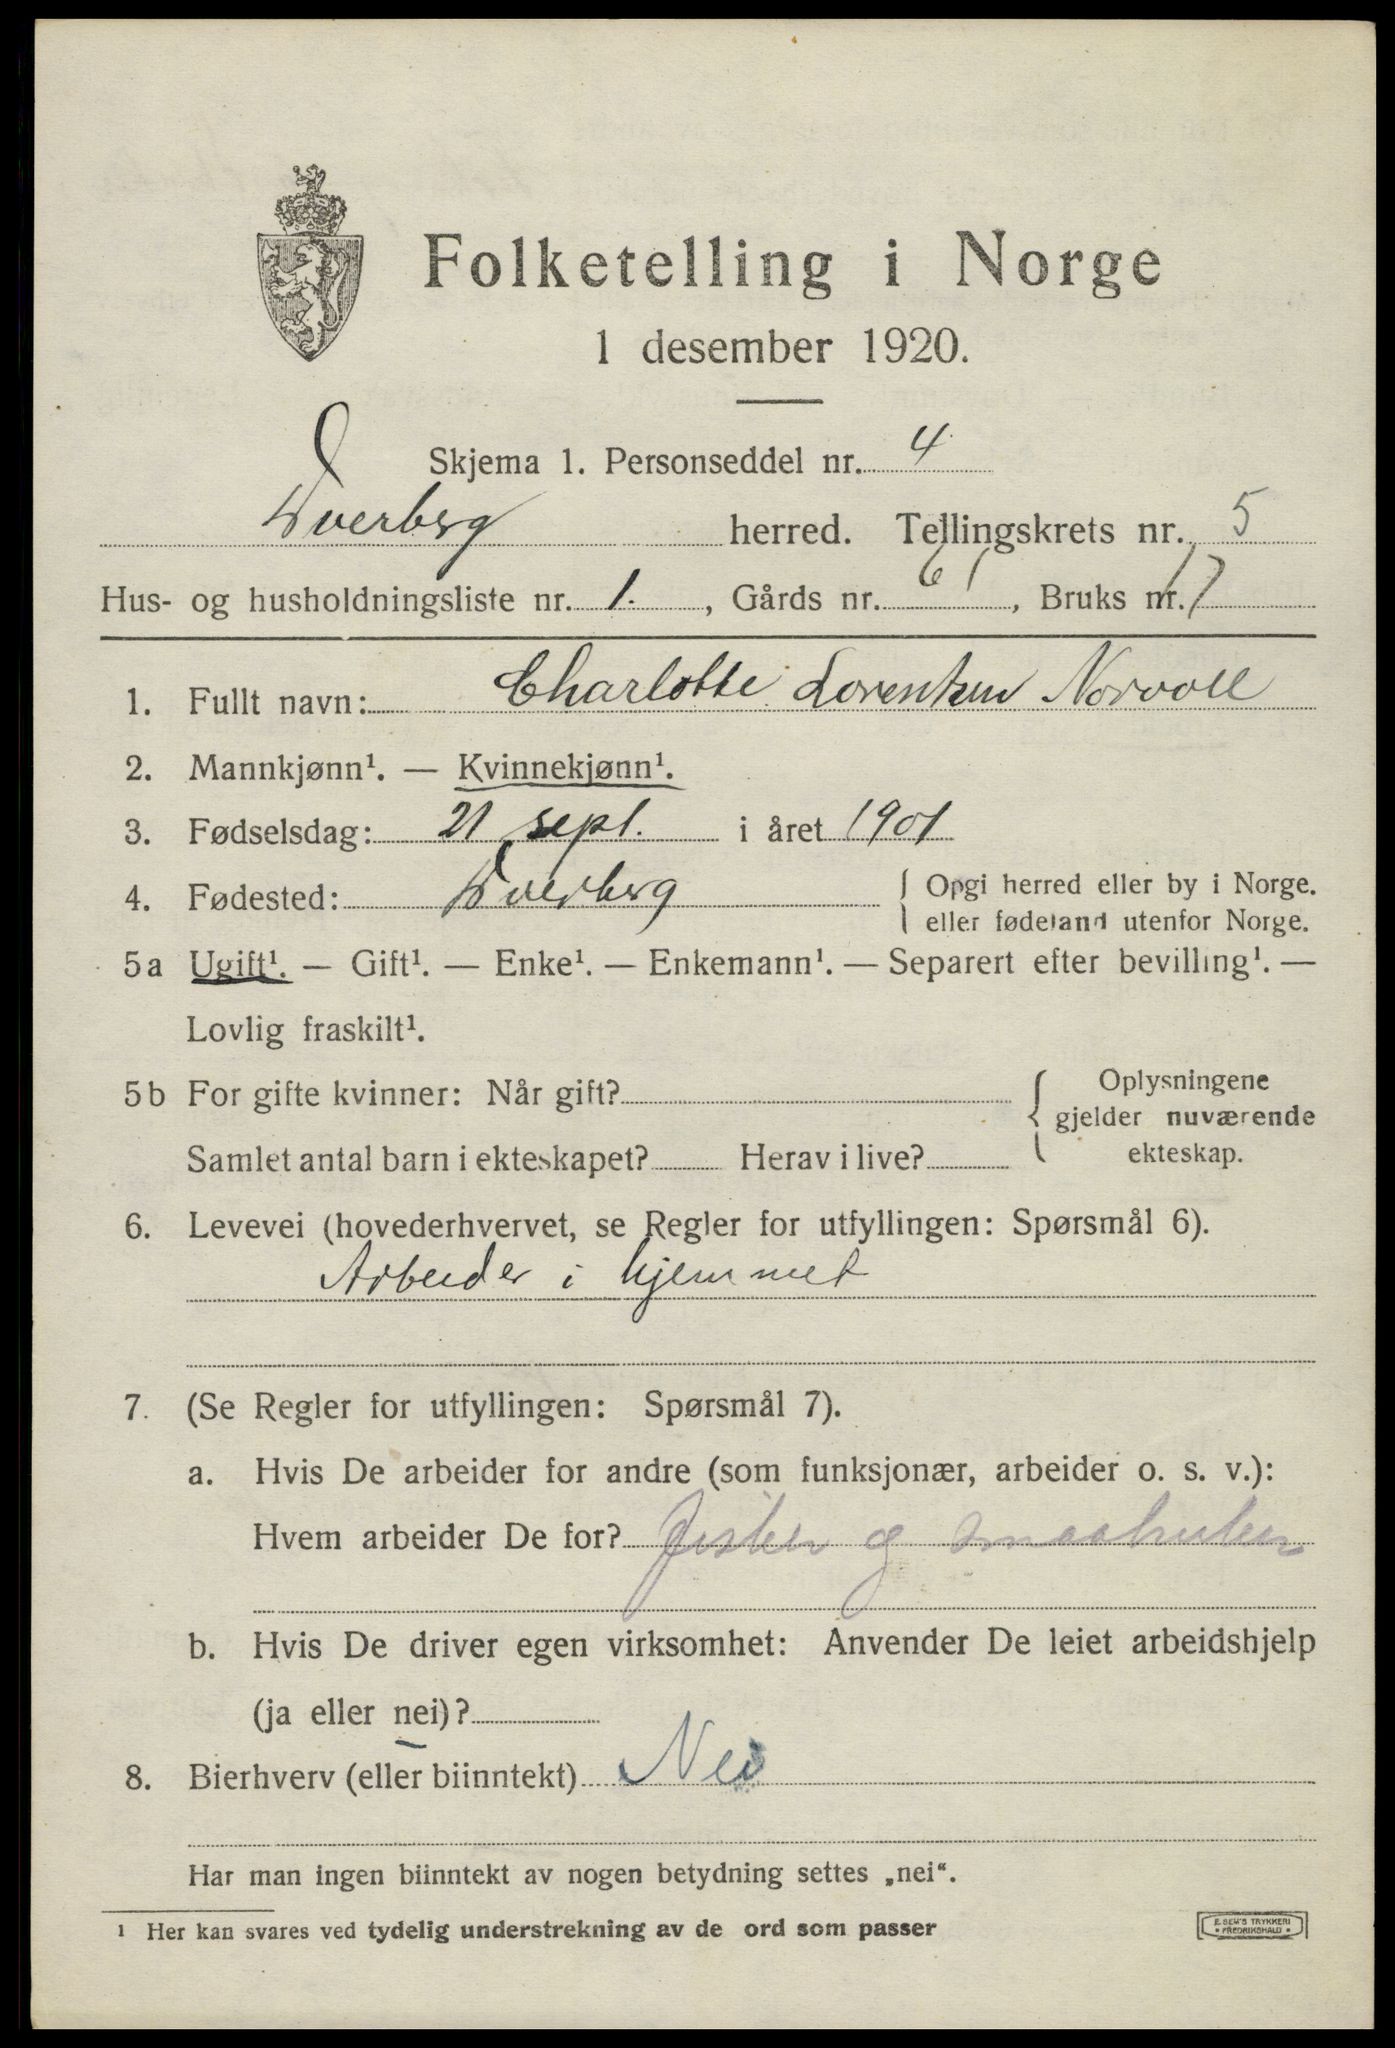 Folketelling i Norge
1 desember 1920.
Skjema 1. Personseddel nr. 4
Dverberg herred. Tellingskrets nr. 5
Hus- og husholdningsliste nr. 1. , Gårds nr. 61 , Bruks nr. 17
1. Fullt navn: Charlotte Lorentzen Norvoll
2. Mannkjønn¹. — Kvinnekjønn¹.
3. Fødselsdag: 21 sept. i året 1901
4. Fødested: Dverberg { Opgi herred eller by i Norge.
eller fødeland utenfor Norge.
5a Ugift¹. — Gift¹. — Enke¹. — Enkemann¹. — Separert efter bevilling¹. —
Lovlig fraskilt¹.
5b For gifte kvinner: Når gift? { Oplysningene
gjelder nuværende
Samlet antal barn i ekteskapet? Herav i live? ekteskap.
6. Levevei (hovederhvervet, se Regler for utfyllingen: Spørsmål 6).
Arbeider i hjemmet
7. (Se Regler for utfyllingen: Spørsmål 7).
a. Hvis De arbeider for andre (som funksjonær, arbeider o. s. v.):
Hvem arbeider De for? fisker og smaabruker
b. Hvis De driver egen virksomhet: Anvender De leiet arbeidshjelp
(ja eller nei)?
8. Bierhverv (eller biinntekt) Nei
Har man ingen biinntekt av nogen betydning settes „nei“.
¹ Her kan svares ved tydelig understrekning av de ord som passer
E. SEM'S TRYKKERI
• FREDRIKSHALD •